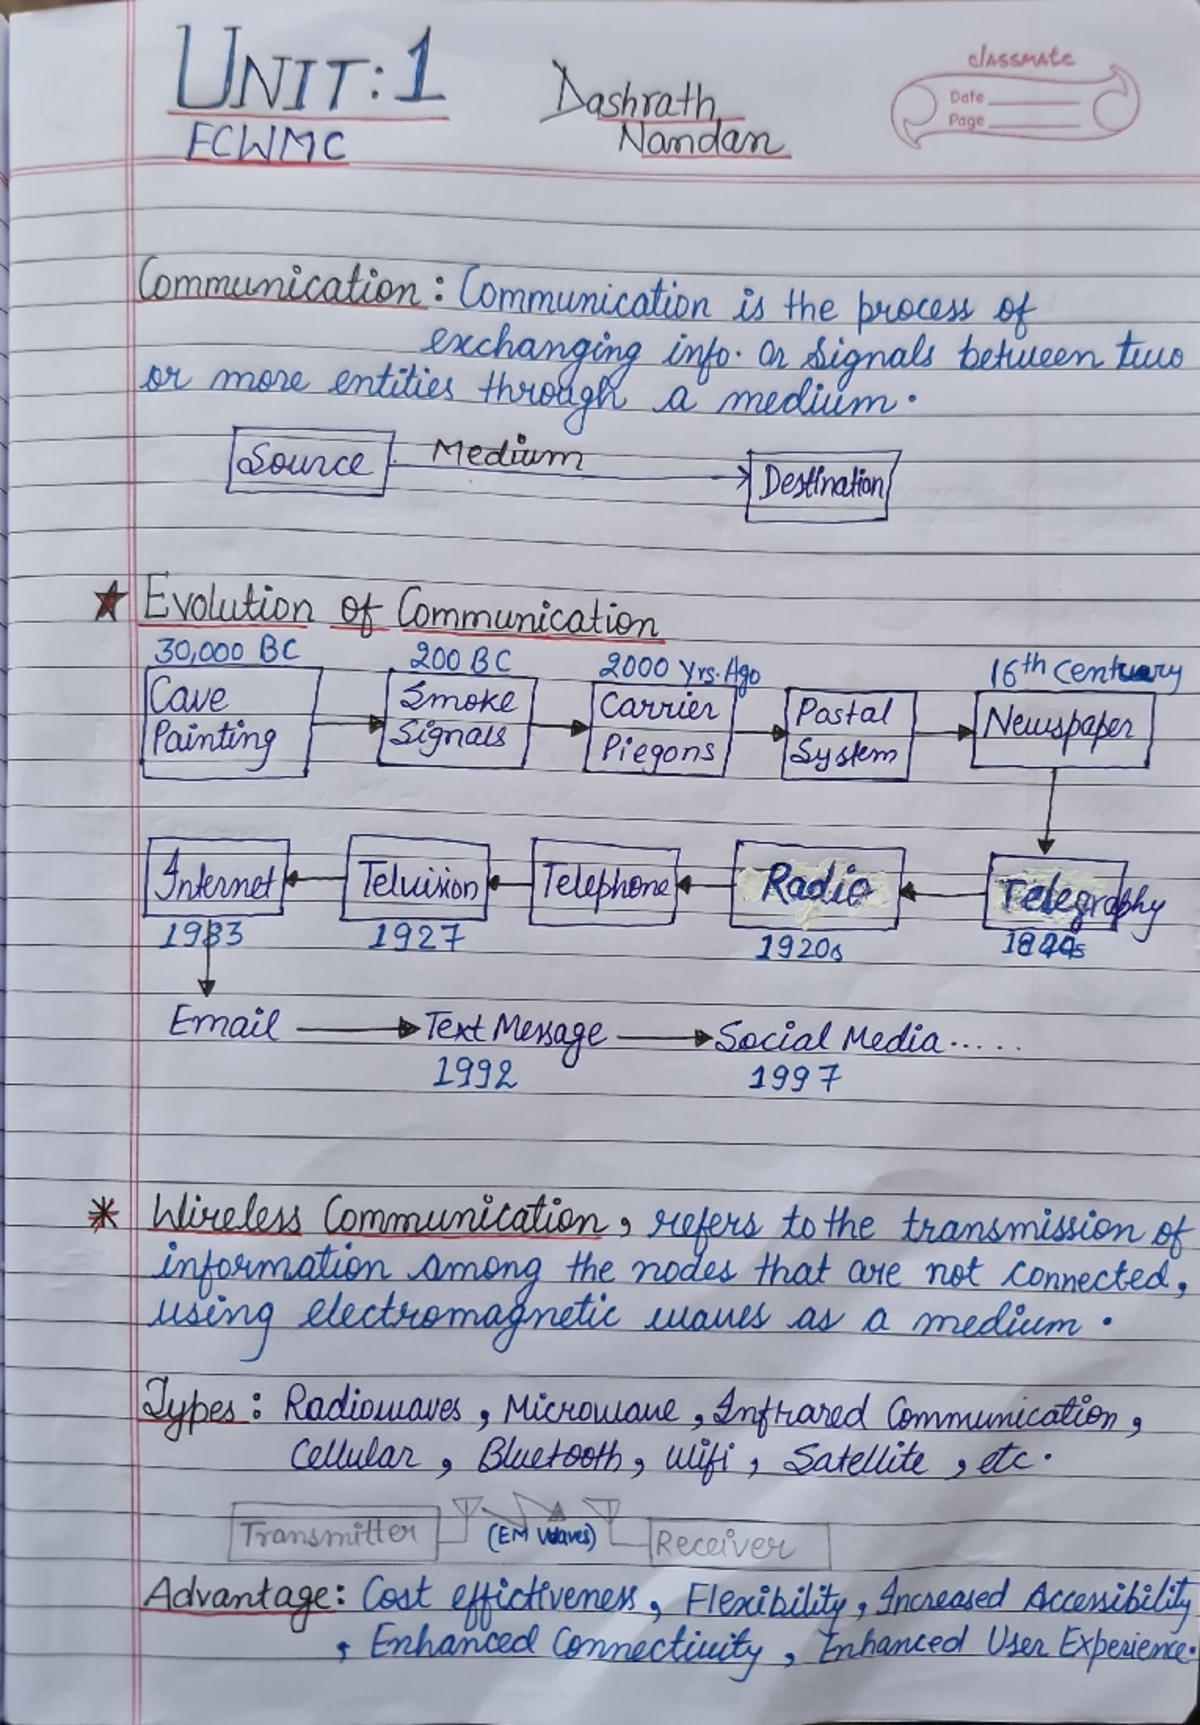 UNIT:1
Dashrath
Nandan
ECWMC
classmate
Date
Page
Communication: Communication is the process of
exchanging info. Or Signals between two
or more entities through a medium.
Source Medium Destination
Evolution of Communication
30,000 BC 200 BC 2000 Yrs. Ago 16th Centuary
Cave Smoke Carrier Postal Newspaper
Painting Signals Piegons System
Internet Telvision Telephone Radio Telegraphy
1983 1927 1920s
Email Text Message Social Media.....
1992 1997
Wireless Communication, refers to the transmission of
information among the nodes that are not connected,
using electromagnetic waves as a medium.
Types: Radiowaves, Microwave, Infrared Communication,
Cellular, Bluetooth, Wifi, Satellite, etc.
Transmitter (EM Waves) Receiver
Advantage: Cost effictiveness, Flexibility, Increased Accessibility
, Enhanced Connectivity, Enhanced User Experience.